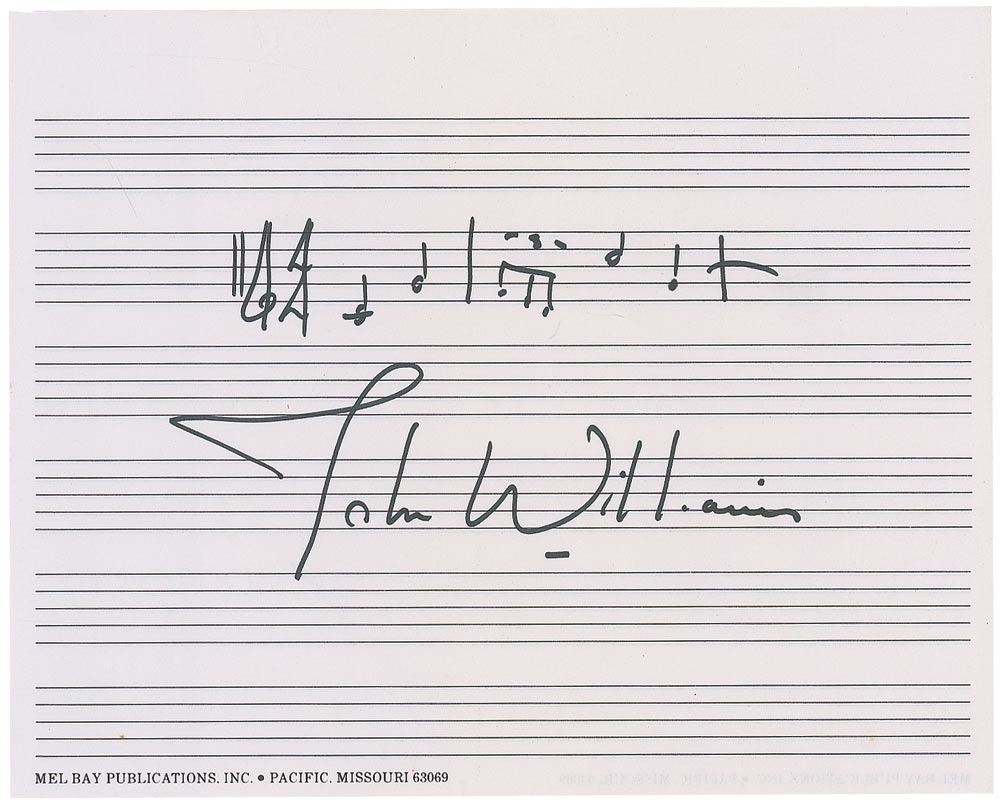 4
4
3
John Williams
MEL BAY PUBLICATIONS, INC. • PACIFIC, MISSOURI 63069